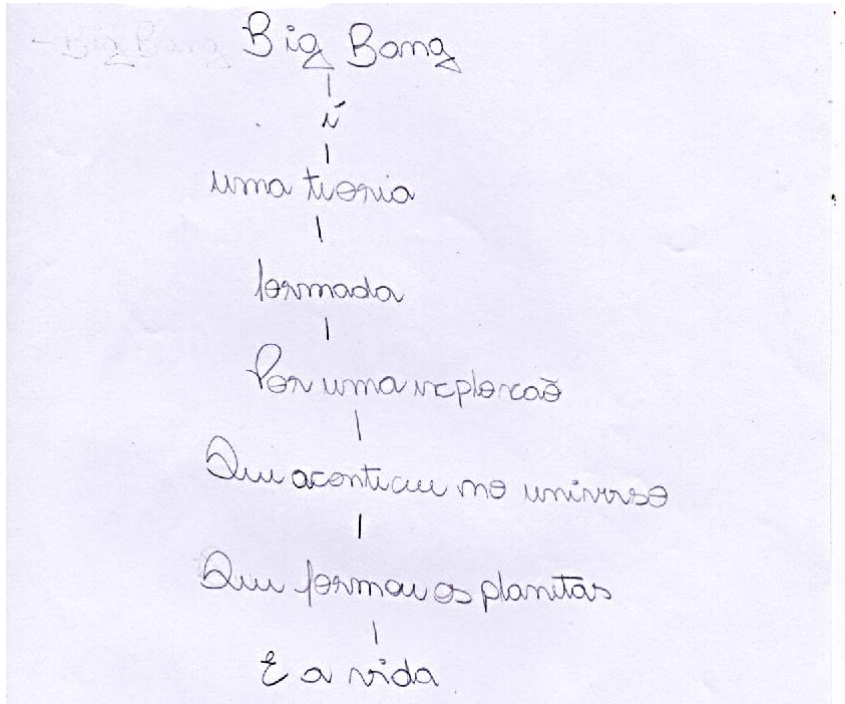 Big Bang
é
uma teoria
formada
Por uma explorcaõ
Que aconteceu no universo
Que formou os planetas
E a vida